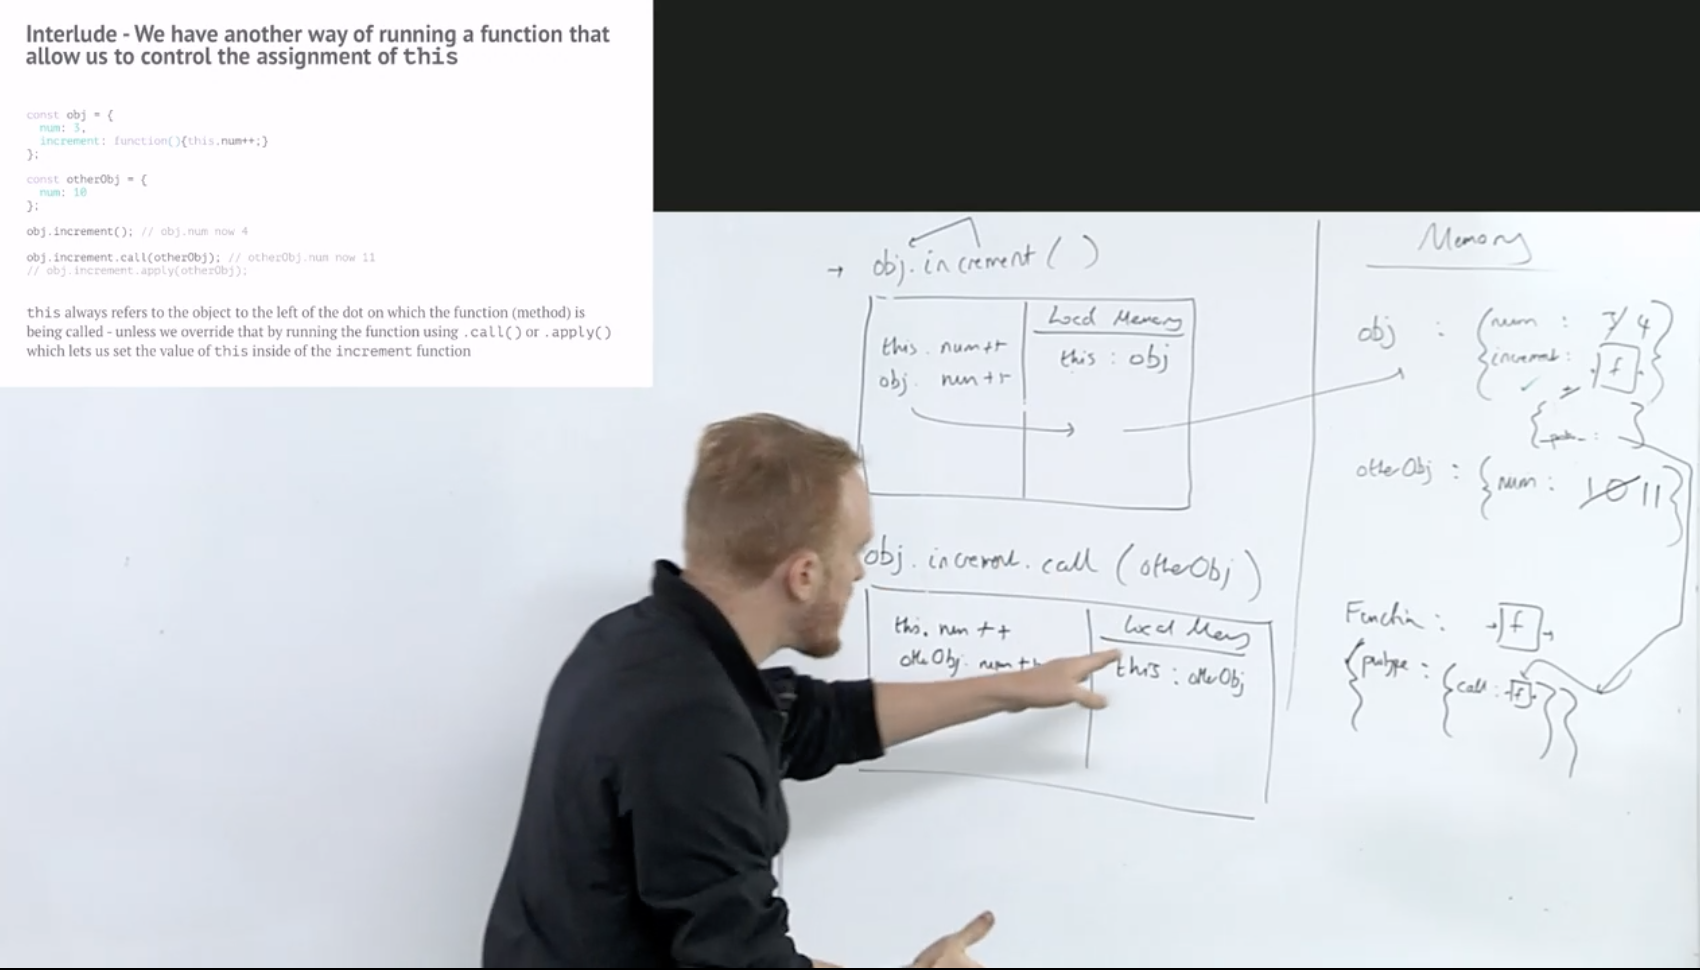 Interlude - We have another way of running a function that
allow us to control the assignment of this
const obj = {
num: 3,
increment: function(){this.num++;}
};
const otherObj = {
num: 10
};
obj.increment(); // obj.num now 4
obj.increment.call(otherObj); // otherObj.num now 11
// obj.increment.apply(otherObj);
this always refers to the object to the left of the dot on which the function (method) is
being called - unless we override that by running the function using .call() or .apply()
which lets us set the value of this inside of the increment function
→ obj.increment()
Local Memory
this. num++
this : obj
obj. num++
obj.increment.call (otherObj)
this. num++
otherObj. num+
this : otherObj
Memory
obj : { num : 3 4
increment: f }
{ : }
otherObj : { num : 10 11 }
Function : f
{ call : f } }